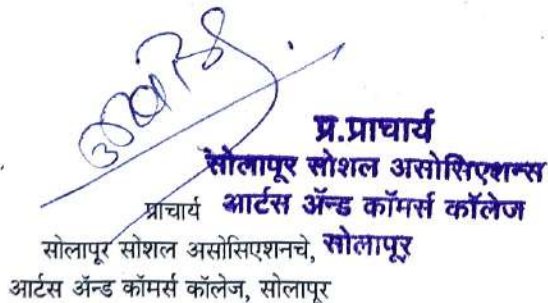 प्र.प्राचार्य
सोलापूर सोशल असोसिएशन्स
आर्टस ॲन्ड कॉमर्स कॉलेज
सोलापूर
प्राचार्य
सोलापूर सोशल असोसिएशनचे,
आर्टस ॲन्ड कॉमर्स कॉलेज, सोलापूर